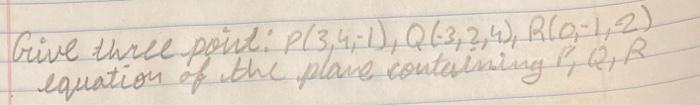 Give three point: P(3,4,-1), Q(-3,2,4), R(0,-1,2)
equation of the plane containing P, Q, R